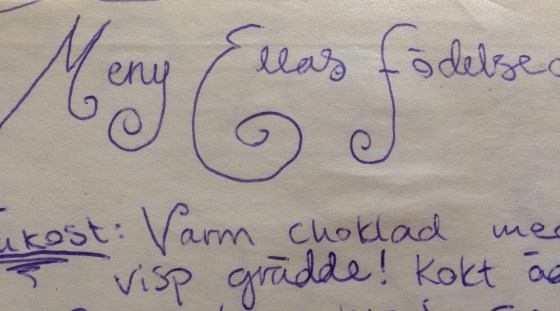 Meny Ellas födelsed
ukost: Varm choklad med
visp grädde! Kokt äg